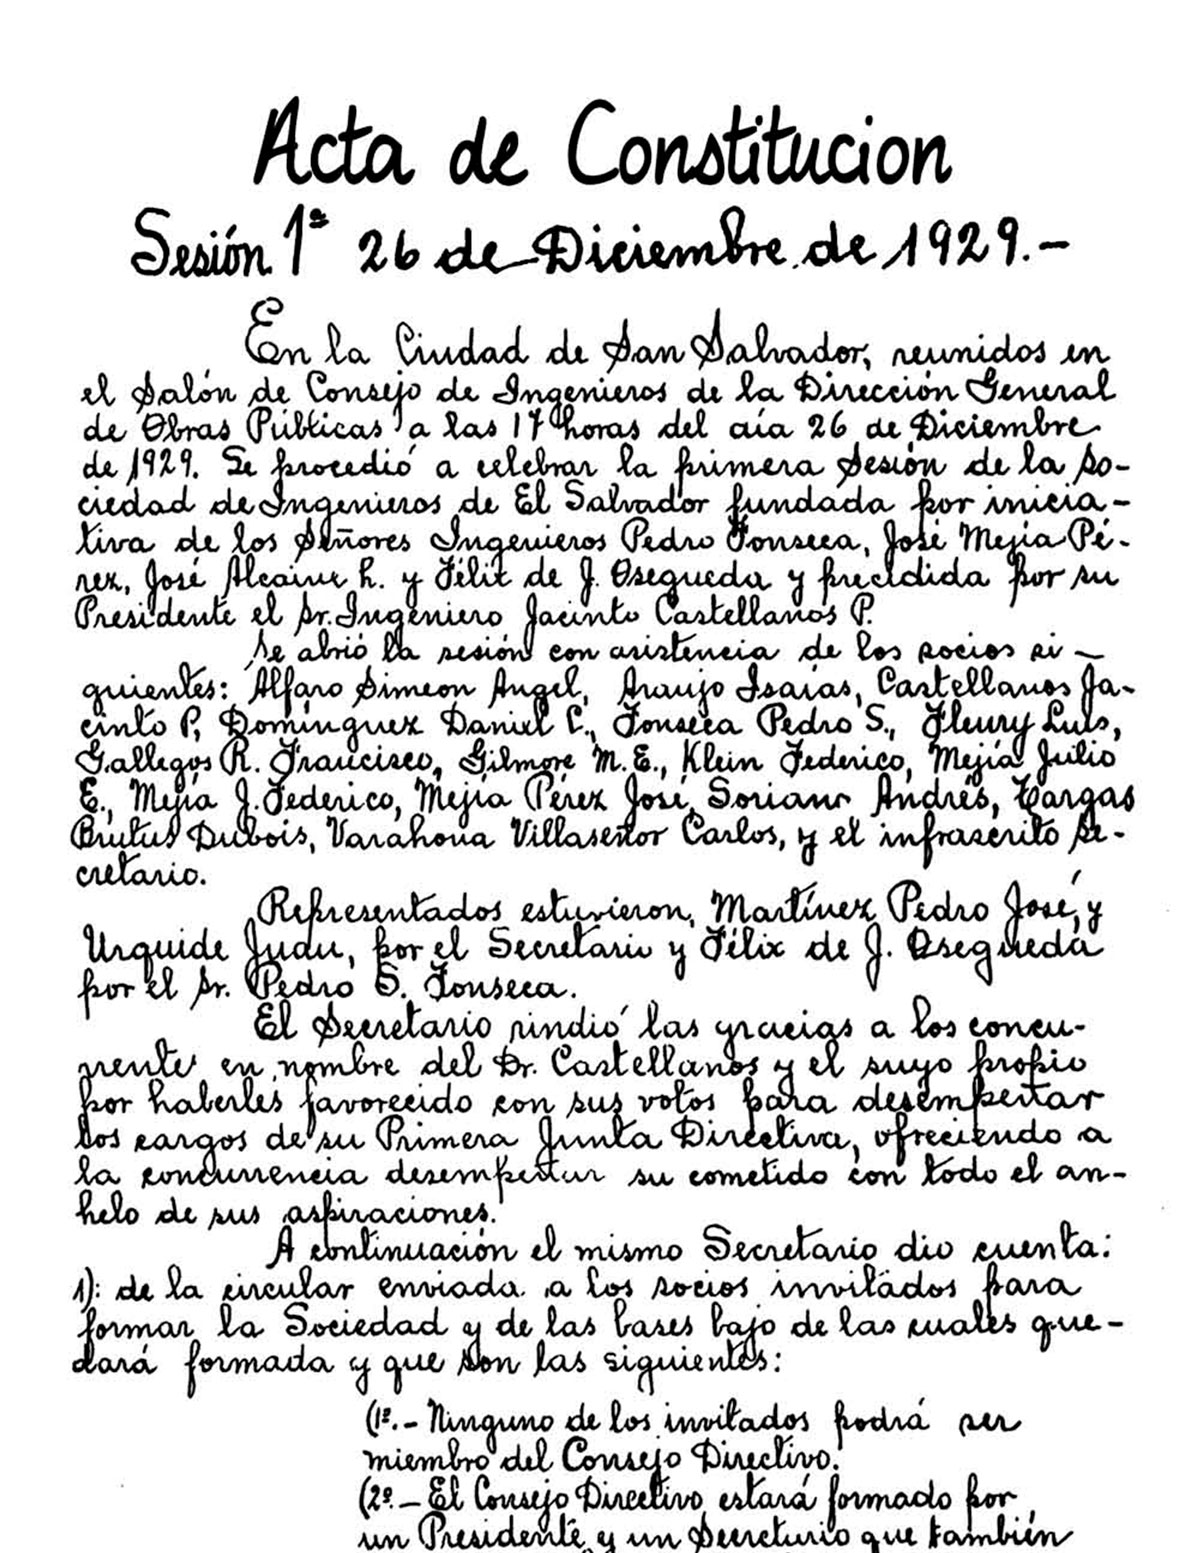 Acta de Constitucion
Sesión 1ª 26 de Diciembre de 1929.-
En la Ciudad de San Salvador, reunidos en
el Salón de Consejo de Ingenieros de la Dirección General
de Obras Públicas a las 17 horas del día 26 de Diciembre
de 1929. Se procedió a celebrar la primera Sesión de la So-
ciedad de Ingenieros de El Salvador fundada por inicia-
tiva de los Señores Ingenieros Pedro Fonseca, José Mejía Pé-
rez, José Alcaine h. y Félix de J. Osegueda y precidida por su
Presidente el Sr. Ingeniero Jacinto Castellanos P.
Se abrió la sesión con asistencia de los socios si-
guientes: Alfaro Simeon Angel, Araujo Isaías, Castellanos Ja-
cinto P, Domínguez Daniel C., Fonseca Pedro S., Fleury Luis,
Gallegos R. Francisco, Gilmore M.E., Klein Federico, Mejía Julio
E., Mejía J. Federico, Mejía Pérez José, Soriano Andrés, Vargas
Brutus Dubois, Varahona Villaseñor Carlos, y el infrascrito Se-
cretario.
Representados estuvieron, Martínez Pedro José, y
Urquide Juan, por el Secretario y Félix de J. Osegueda
por el Sr. Pedro S. Fonseca.
El Secretario rindió las gracias a los concu-
rrente en nombre del Dr. Castellanos y el suyo propio
por haberles favorecido con sus votos para desempeñar
los cargos de su Primera Junta Directiva, ofreciendo a
la concurrencia desempeñar su cometido con todo el an-
helo de sus aspiraciones.
A continuación el mismo Secretario dio cuenta:
1): de la circular enviada a los socios invitados para
formar la Sociedad y de las bases bajo de las cuales que-
dará formada y que son las siguientes:
(1º.- Ninguno de los invitados podrá ser
miembro del Consejo Directivo.
(2º.- El Consejo Directivo estará formado por
un Presidente y un Secretario que también